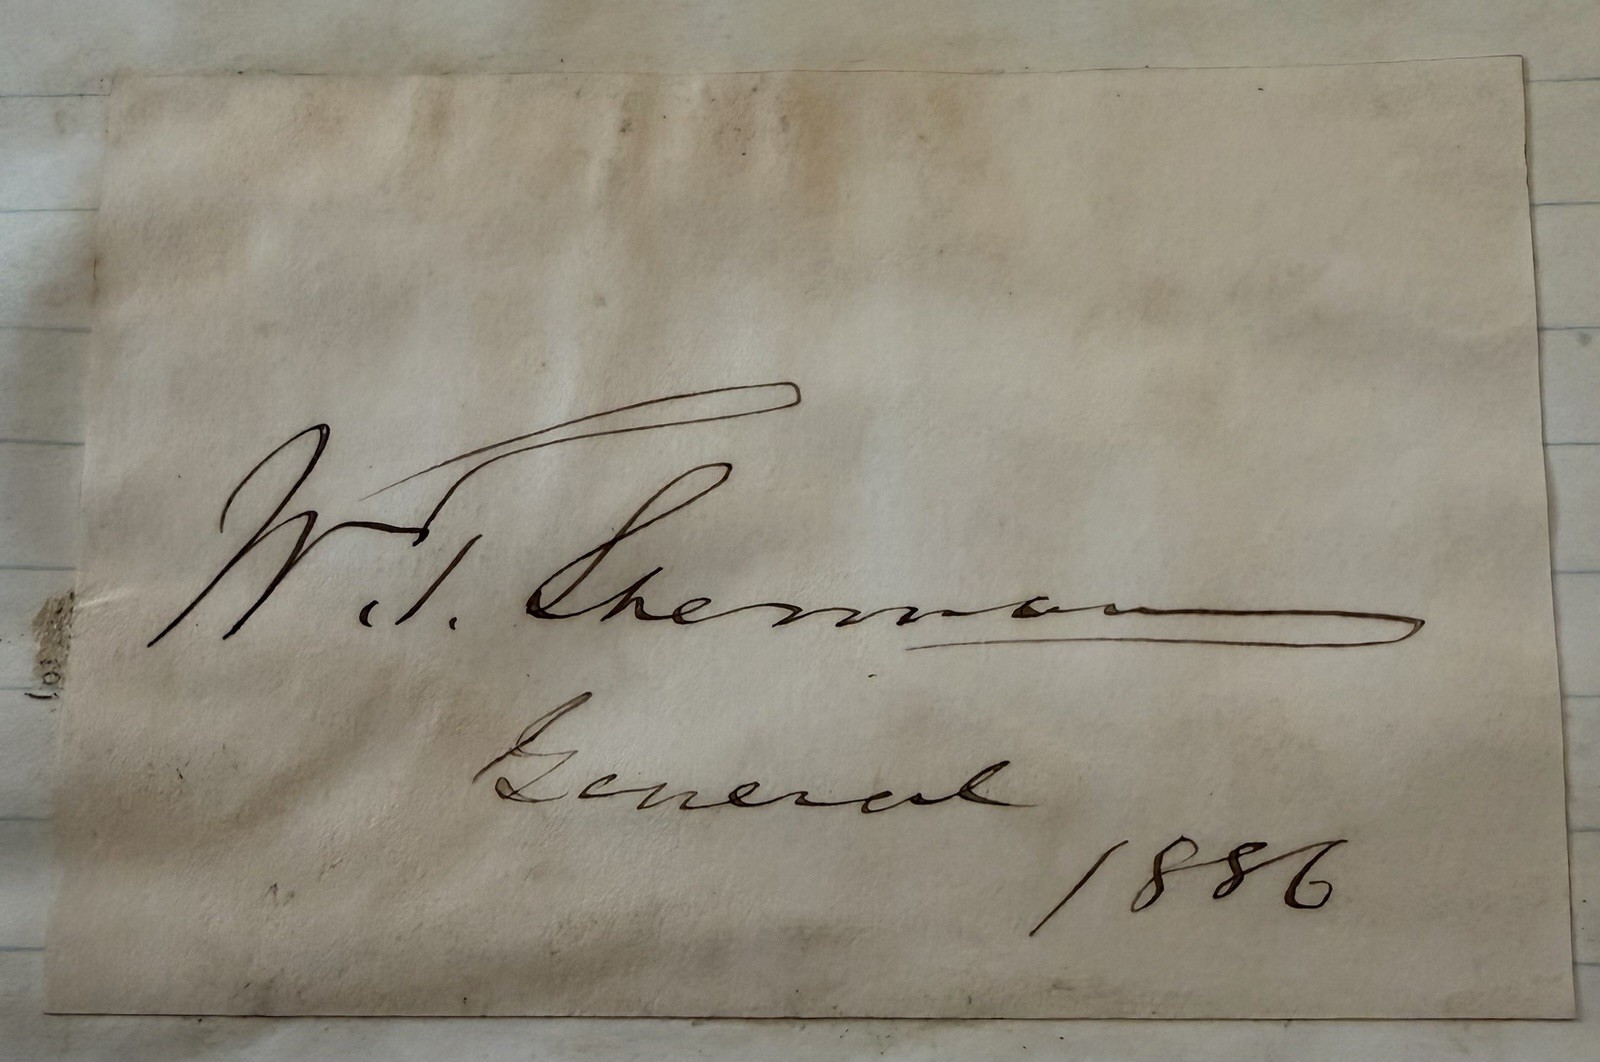 W. T. Sherman
General
1886